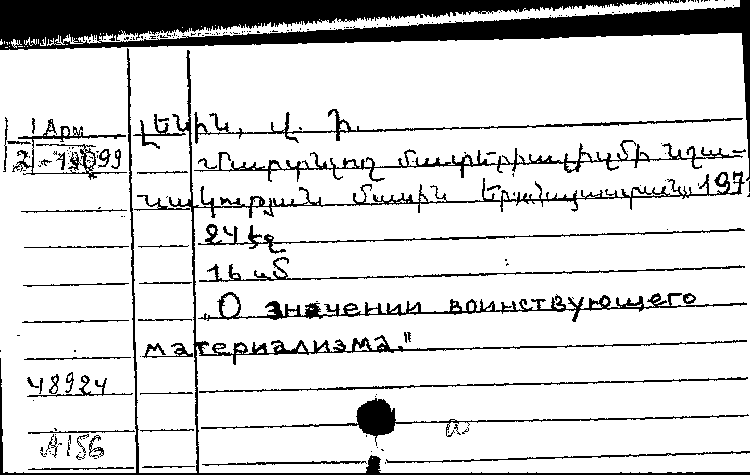 Арм
2-19099
Լենին, Վ. Ի.
Մարտնչող մատերիալիզմի նշա-
նակության մասին Եր., «Հայաստան» 197
24 էջ
16 սմ
„О значении воинствующего
материализма."
48924
A156
a